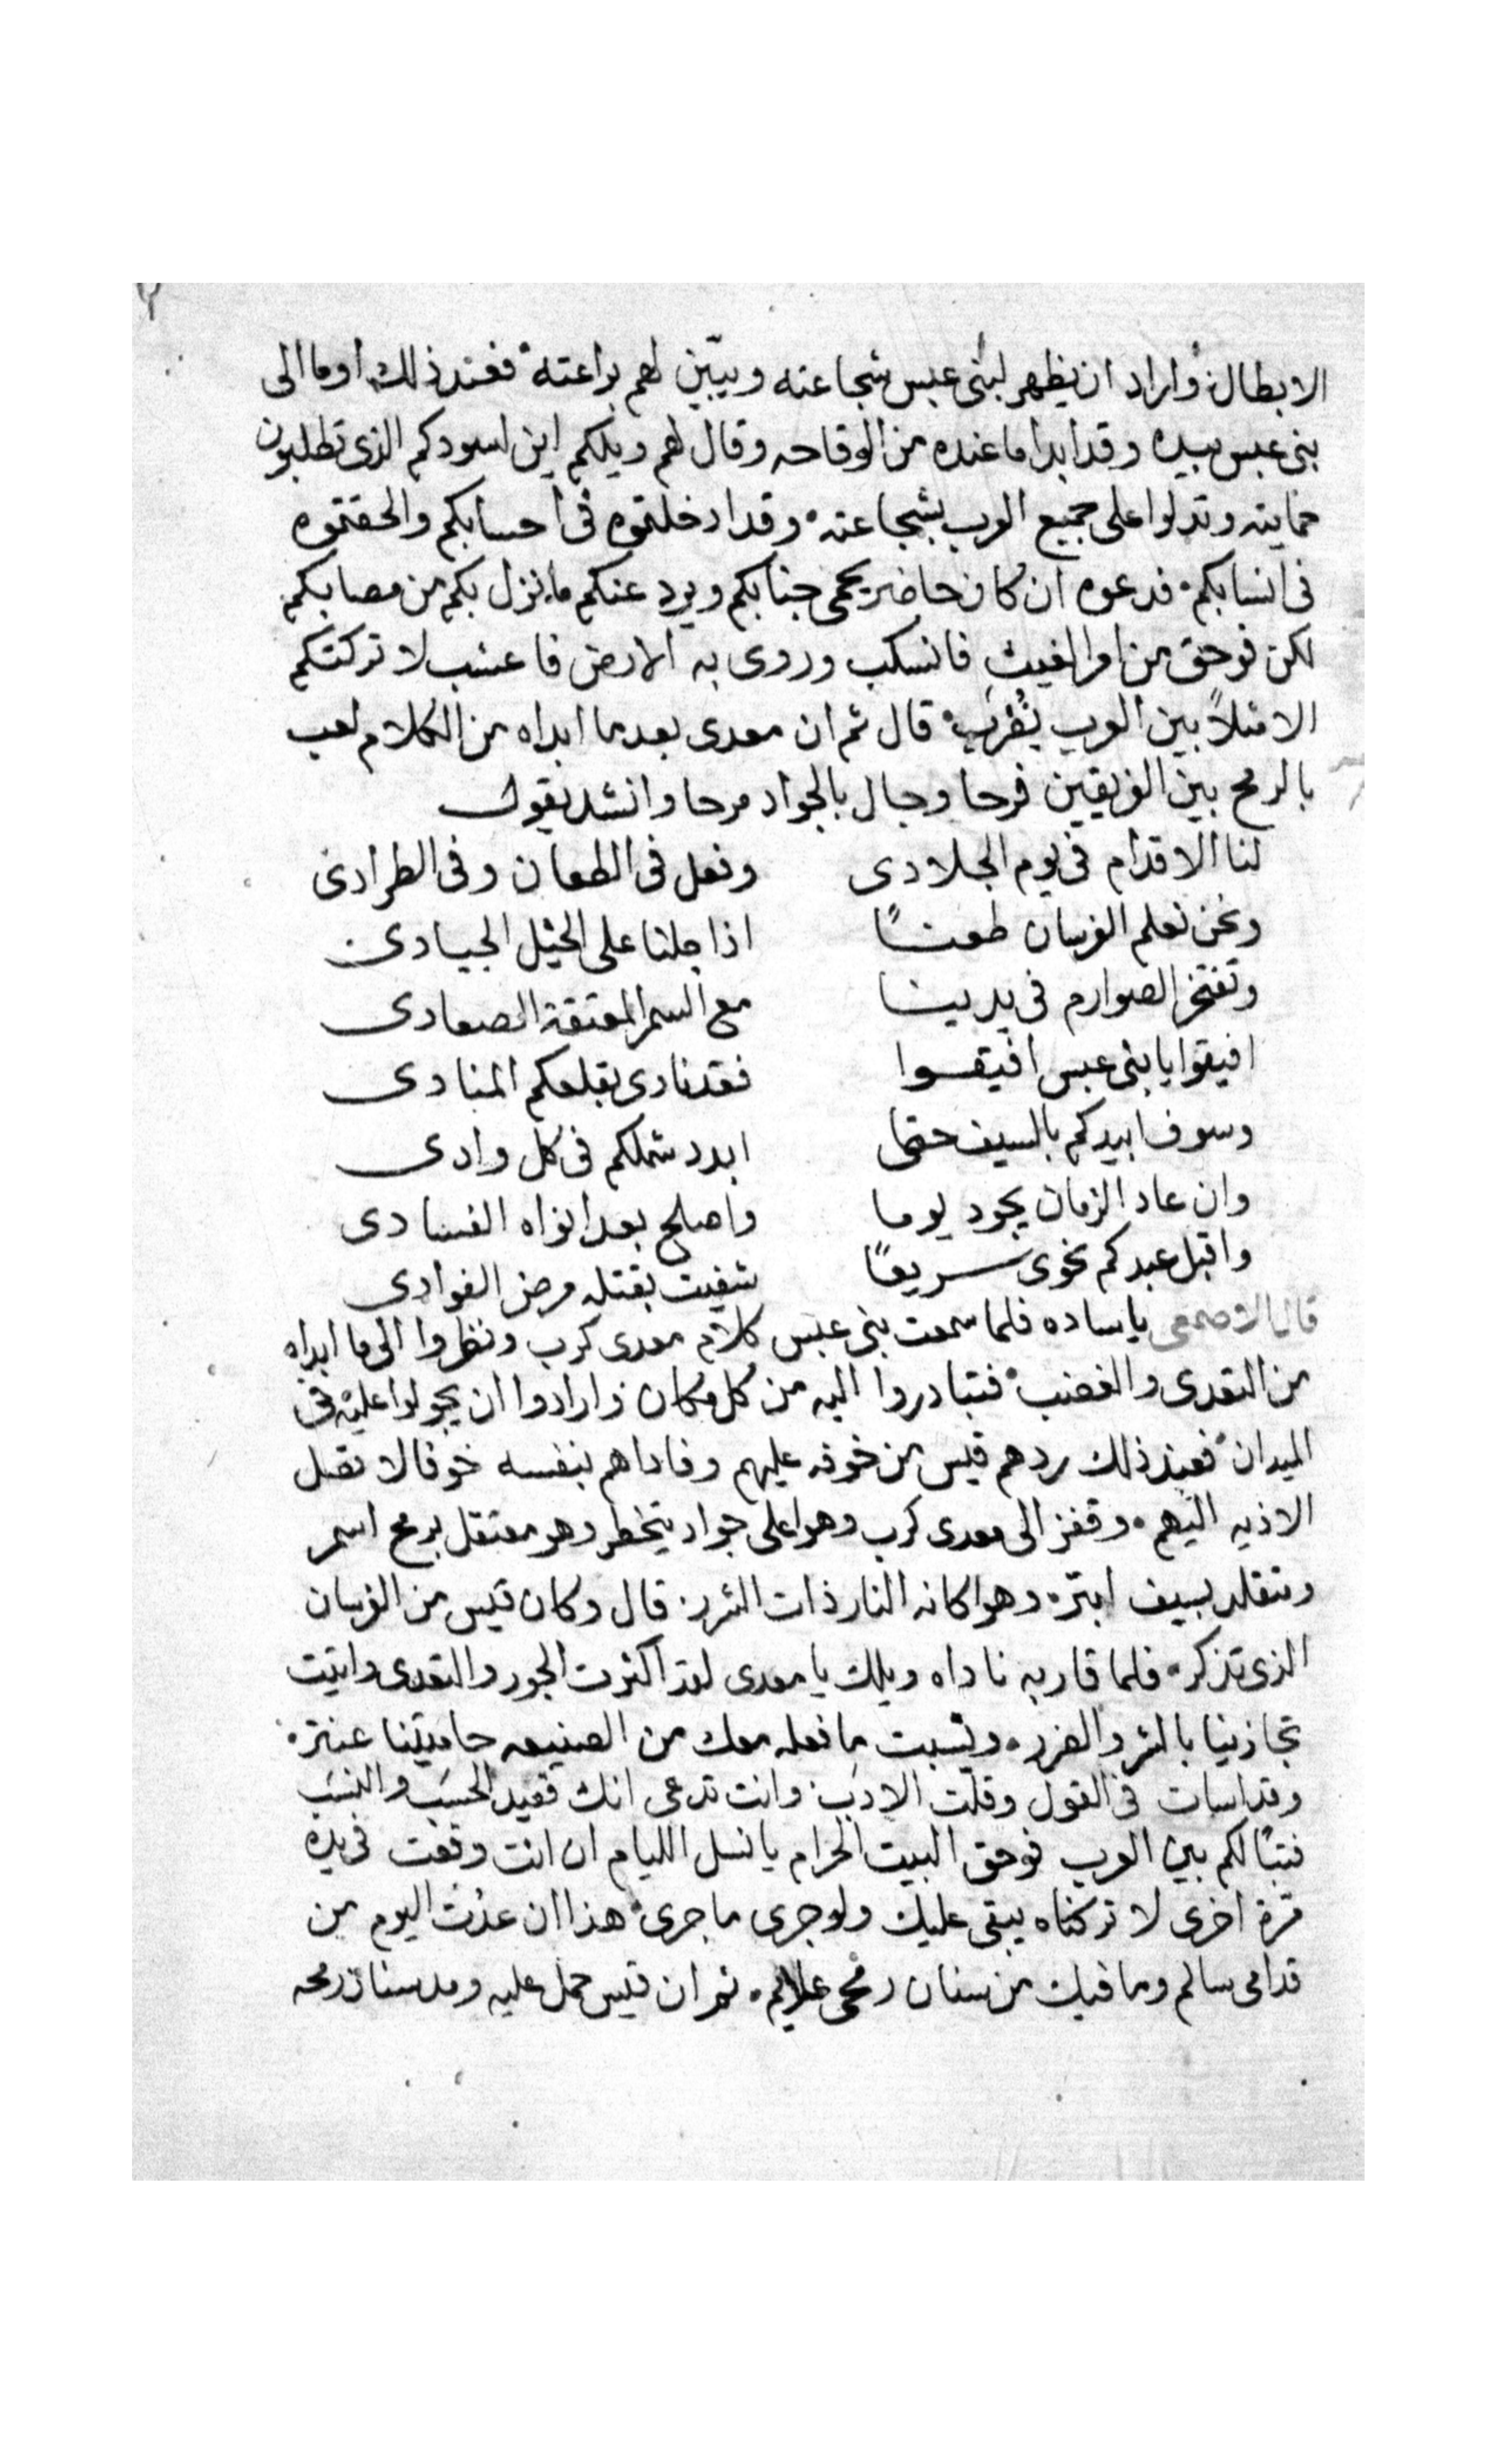 الابطال وأراد ان يظهر لبنى عبس شجاعته ويبيّن لهم براعته فعند ذلك اوما الى
بنى عبس بيده وقد ابدا ما عنده من الوقاحه وقال لهم ويلكم اين اسودكم الذى تطلبون
حمايته وتدلوا على جميع العرب بشجاعته وقد ادخلتوه فى احسابكم والحقتوه
فى انسابكم فدعوه ان كان حاضر يحمى جنابكم ويرد عنكم ما نزل بكم من مصابكم
لكن فوحق من امر الغيث فانسكب وروى به الارض فاعشب لا تركتكم
الا مثلاً بين العرب يُضرب قال ثم ان معدى بعدما ابداه من الكلام لعب
بالرمح بين الفريقين فرحا وجال بالجواد مرحا وانشد يقول
لنا الاقدام فى يوم الجلادى ونعل فى الطعان وفى الطرادى
ونحن نعلم الفرسان طعنًا اذا جلنا على الخيل الجيادى
وتفتخر الصوارم فى يدينا مع السمر المعتقة الصعادى
افيقوا يا بنى عبس افيقوا فقد نادى بقلعكم المنادى
وسوف ابيدكم بالسيف حتما ابدد شملكم فى كل وادى
وان عاد الزمان يجود يوما واصلح بعد انواه الفسادى
واقبل عبدكم نحوى سريعًا شفيت بقتله مرض الفوادى
قال الاصمعى يا ساده فلما سمعت بنى عبس كلام معدى كرب ونظروا الى ما ابداه
من التعدى والغضب فتبادروا اليه من كل مكان وارادوا ان يجولوا عليه فى
الميدان فعند ذلك ردهم قيس من خوفه عليهم وفاداهم بنفسه خوفا لا تصل
الاذيه اليهم وقفز الى معدى كرب وهوا على جواد يتخطر وهو معتقل برمح اسمر
ومتقلد بسيف ابتر وهوا كانه النار ذات الشرر قال وكان قيس من الفرسان
الذى تذكر فلما قاربه ناداه ويلك يا معدى لقد اكثرت الجور والتعدى واتيت
تجازينا بالشر والضرر ونسيت ما فعله معك من الصنيعه حاميتنا عنتر
وقد اسات فى القول وقلت الادب وانت تدعى انك فقيد الحسَب والنسَب
فتبًا لكم بين العرب فوحق البيت الحرام يا نسل الليام ان انت وقعت فى يده
مرة اخرى لا تركناه يبقى عليك ولو جرى ما جرى هذا ان عدت اليوم من
قدامى سالم وما فيك من سنان رمحى علايم ثم ان قيس حمل عليه ومد سنان رمحه